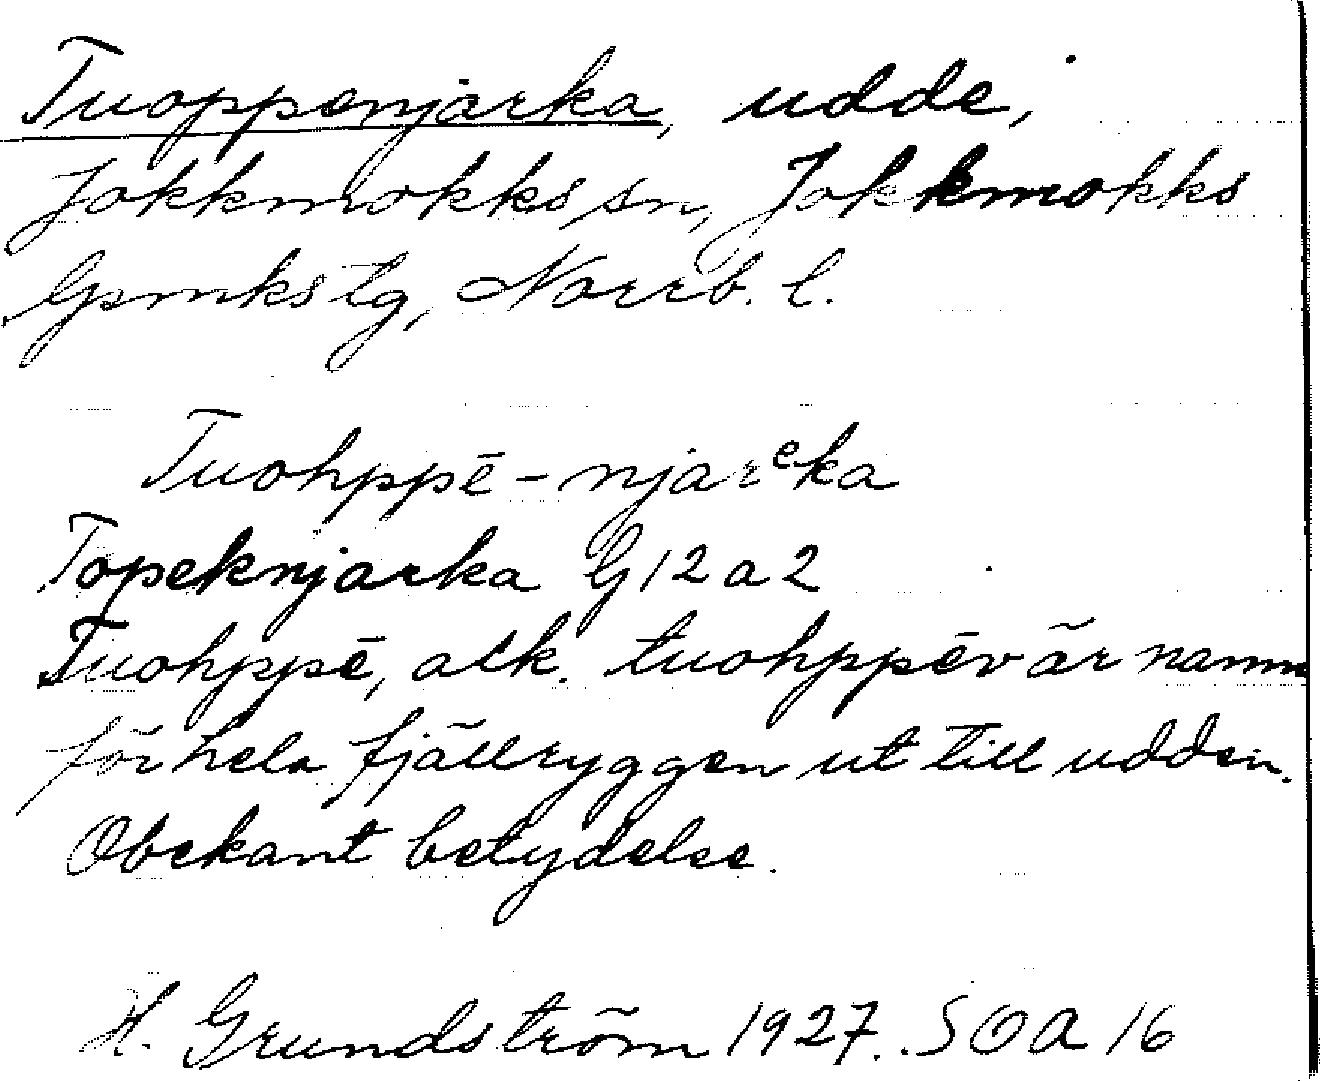 Tuoppenjarka, udde,
Jokkmokks sn, Jokkmokks
lpmks tg, Norrb. l.
Tuohppē-njarᵉka
Topeknjarka G12a2
Tuohppē, ack. tuohppēv är namn
för hela fjällryggen ut till udden.
Obekant betydelse.
H. Grundström 1927. SOA 16